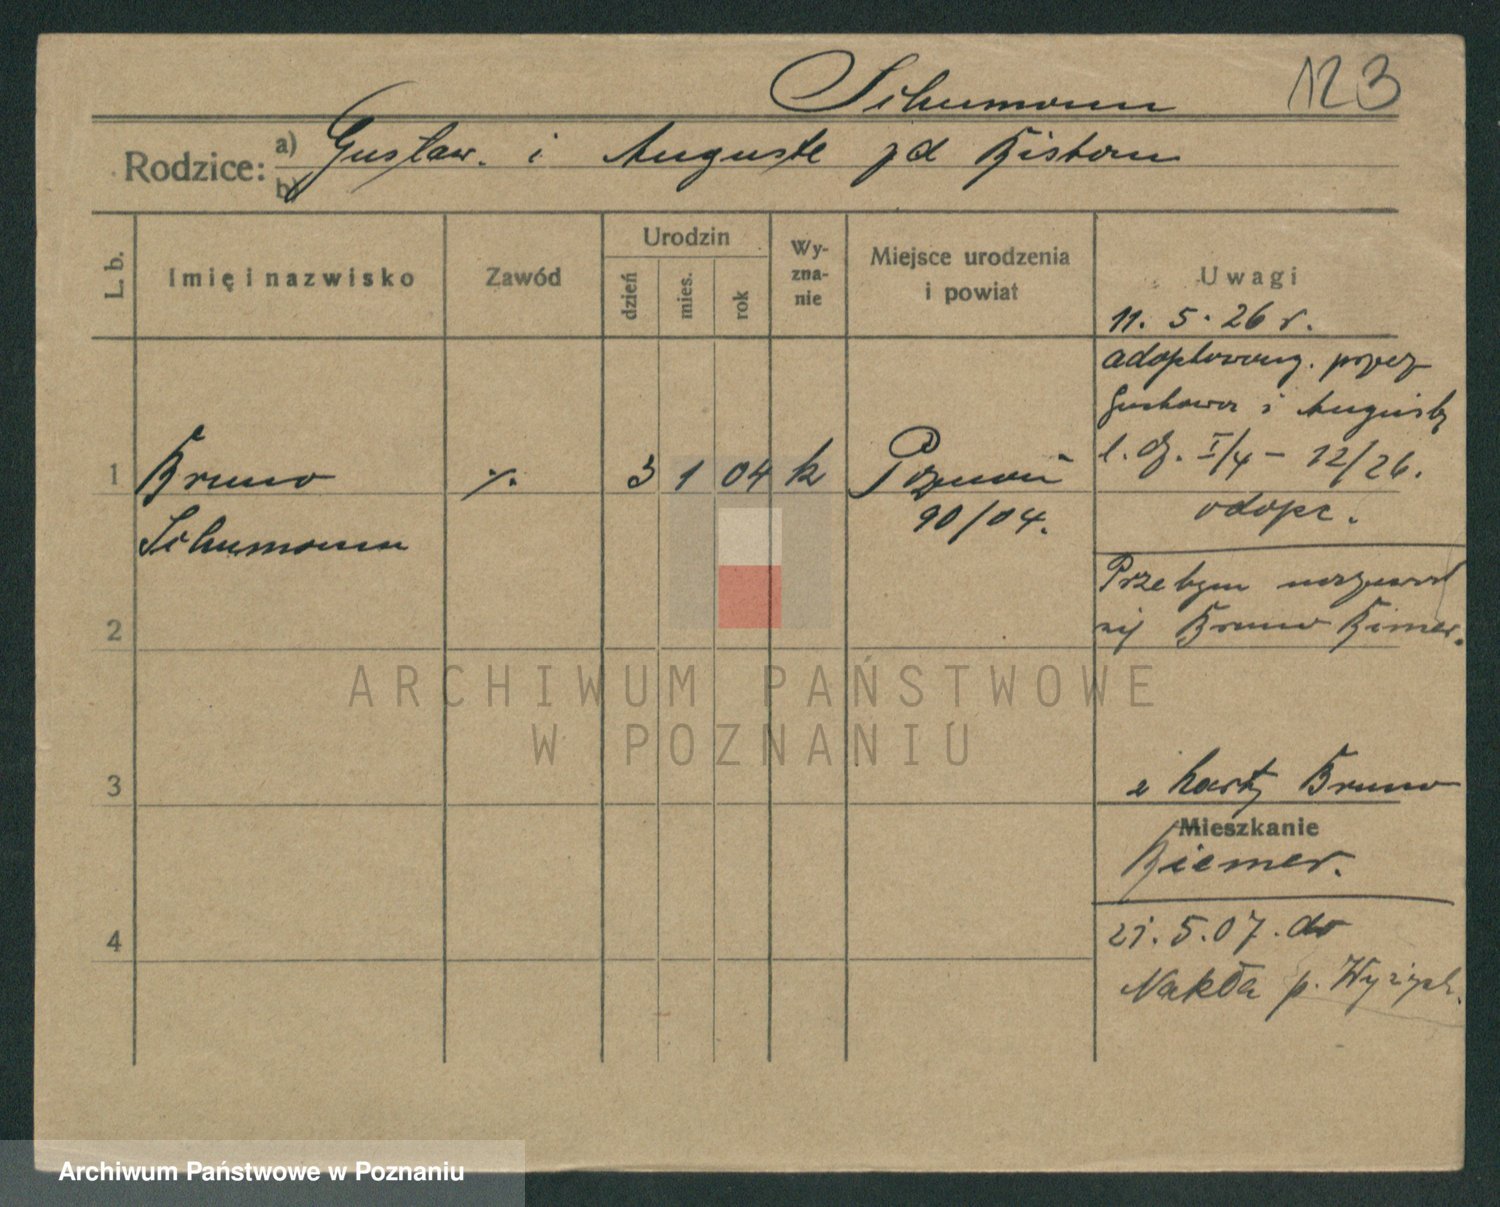 Schumann 123
Rodzice: a) Gustaw. i Auguste zd Kistow
b)
L. b.
Imię i nazwisko
Zawód
Urodzin
dzień
mies.
rok
Wy-
zna-
nie
Miejsce urodzenia
i powiat
Uwagi
11. 5. 26 r.
adoptowany. przez
Gustawa i Augustę
l. dz. I/4 - 12/26.
adopc.
1 Bruno ·/. 3 1 04 k Poznań
Schumann 90/04.
Przedtym nazywał
się Bruno Riemer.
2
3
z karty Bruno
Mieszkanie
Riemer.
21. 5. 07. do
4
Nakła p. Wyrzysk.
ARCHIWUM PAŃSTWOWE
W POZNANIU
Archiwum Państwowe w Poznaniu